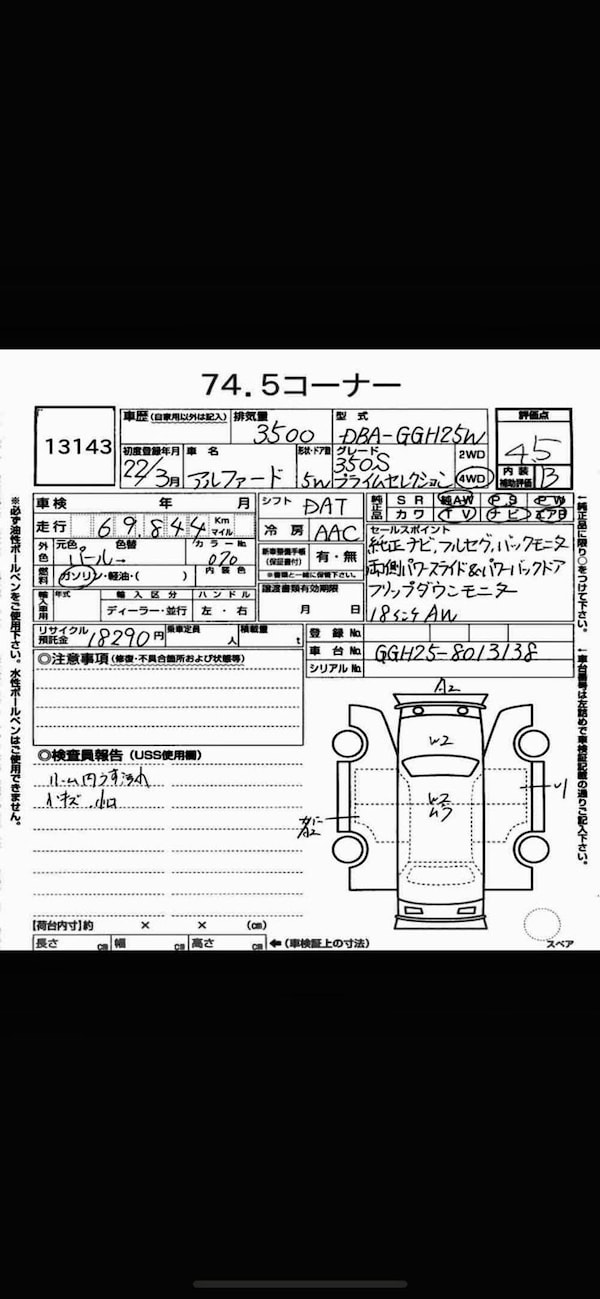 74.5コーナー
13143
車歴(自家用以外は記入)
排気量
3500
型式
DBA-GGH25W
評価点
4.5
初度登録年月
22/3月
車名
アルファード
形状・ドア数
5W
グレード
350S
プライムセレクション
2WD
4WD
内装
補助評価
B
車検 年 月
シフト
DAT
純正品
SR 純AW PS PW
カワ TV ナビ エアB
走行 69,844 Km マイル
冷房
AAC
セールスポイント
純正ナビ,フルセグ,バックモニタ
両側パワースライド&パワーバックドア
フリップダウンモニター
18インチAW
外色
元色
パール
色替
カラーNo.
070
新車整備手帳
(保証書付)
有・無
※書類と一緒に保管下さい。
燃料
ガソリン・軽油・( )
内装色
譲渡書類有効期限
月 日
輸入車用
年式
輸入区分
ディーラー・並行
ハンドル
左・右
リサイクル
預託金
18290円
乗車定員
人
積載量
t
登録No.
車台No.
GGH25-8013138
シリアルNo.
◎注意事項(修復・不具合箇所および状態等)
◎検査員報告(USS使用欄)
ルーム内うす汚れ
小キズ
A2
W2
W2
A2
【荷台内寸】約 × × (cm)
長さ cm 幅 cm 高さ cm ←(車検証上の寸法)
スペア
※必ず油性ボールペンをご使用下さい。水性ボールペンはご使用できません。
↑純正品に限り○をつけて下さい。
↑車台番号は左詰めで車検証記載の通りご記入下さい。